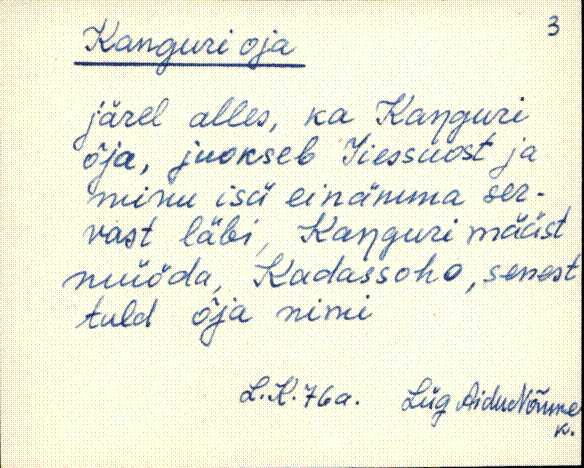 3
Kanguri oja
järel alles, ka Kaŋguri
õja, juokseb Iiessuost ja
minu isä einämma ser-
vast läbi, Kaŋguri määst
müödä, Kadassoho, senest
tuld õja nimi
L.K. 76a. Lüg Aidu Nõmme
k.